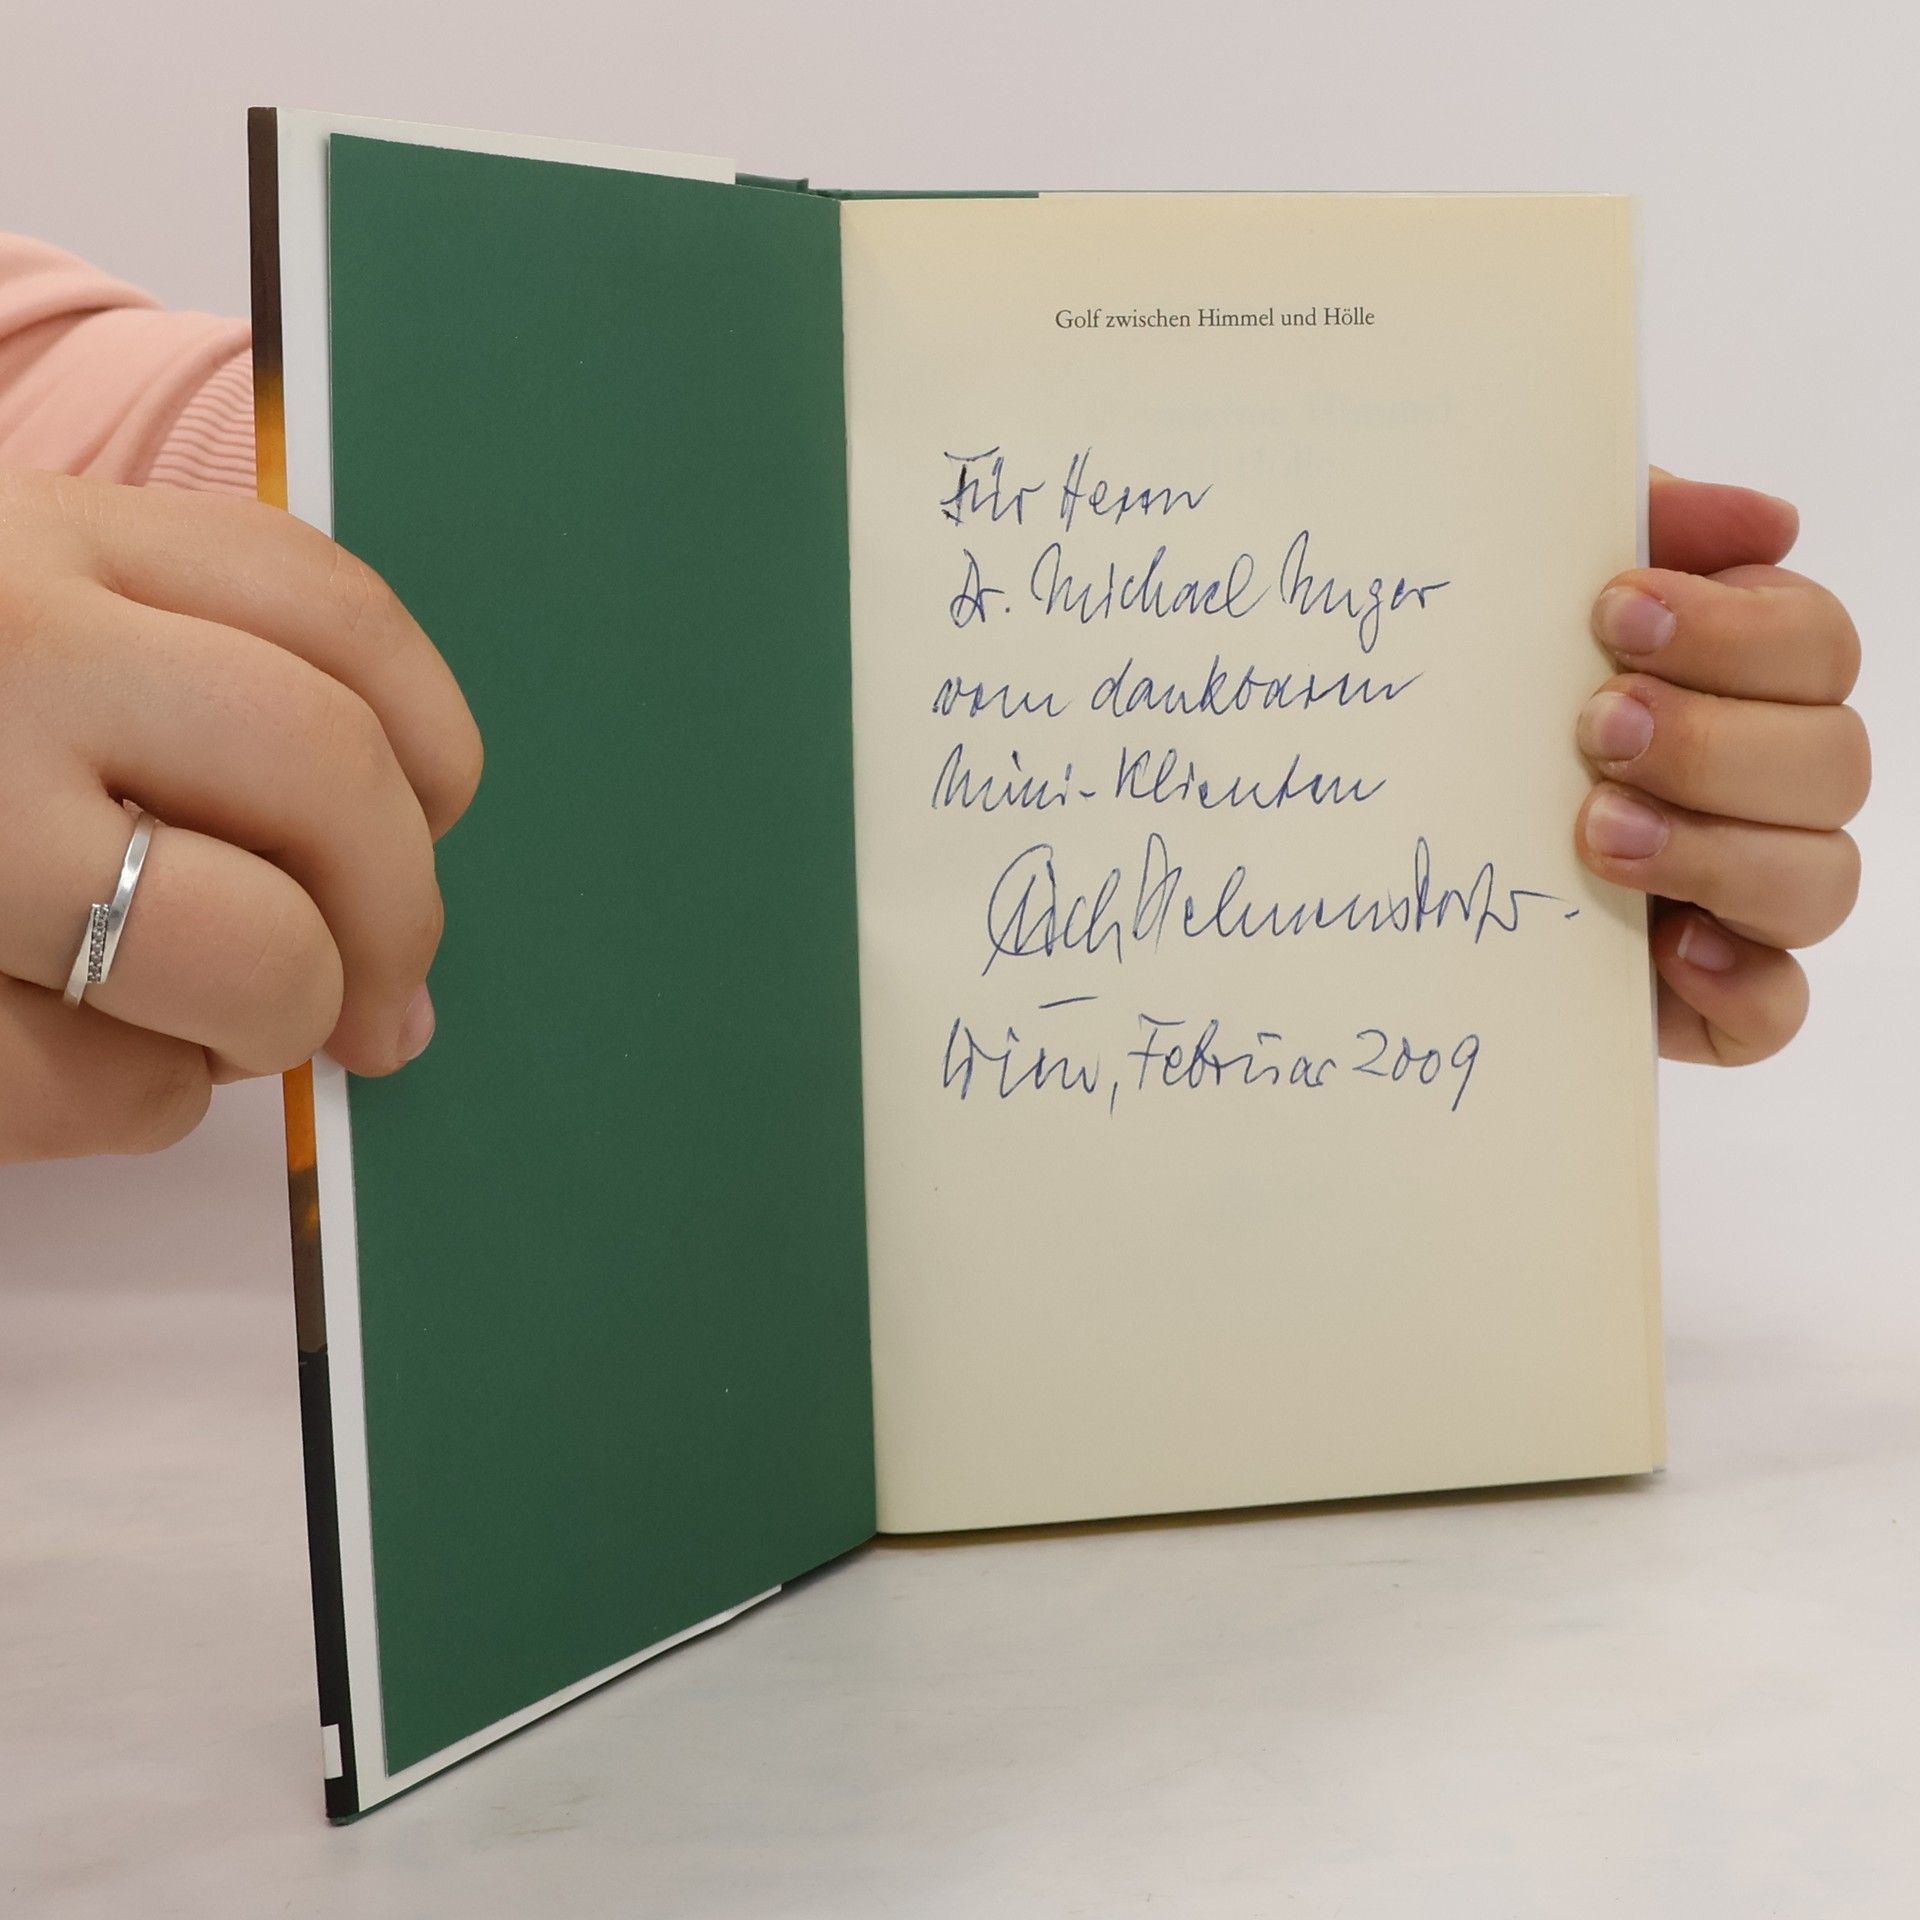 Golf zwischen Himmel und Hölle
Für Herrn
Dr. Michael
vom dankbaren
Mini-Klienten
Wien, Februar 2009